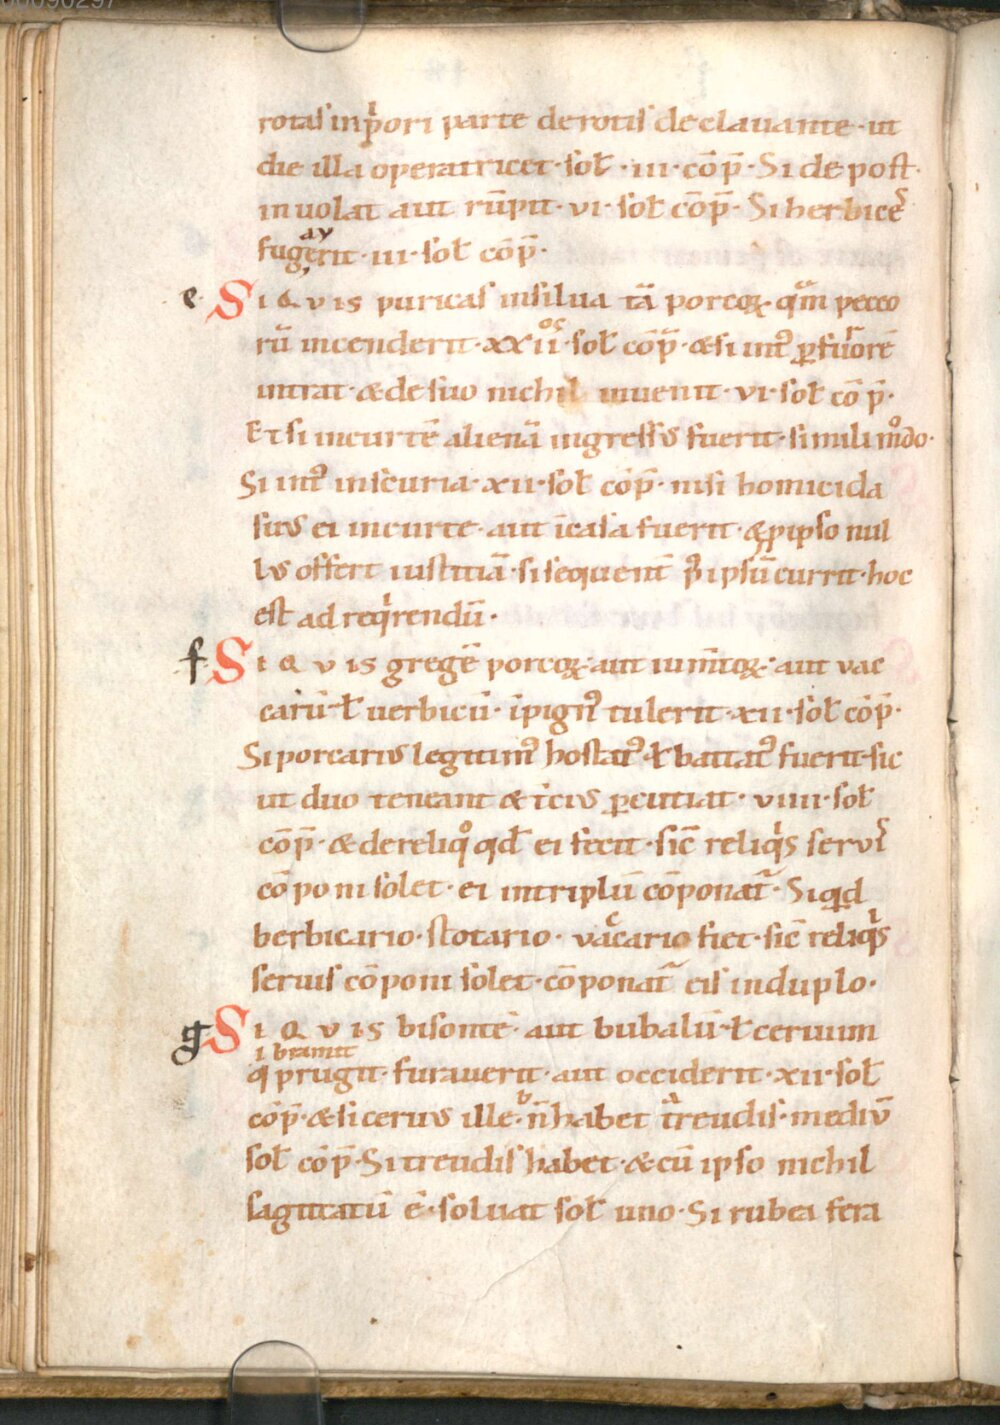 00090297
rotas inp̄ori parte derotis declauante · ut
die illa operatricet · sol̄ · iii · cōp̄ · Si de post
inuolat aut rūpit · vi · sol̄ cōp̄ · Si herbices
fugerit · iii · sol̄ cōp̄ ·
e · SI QVIS puricas insilua tā porcoꝝ · quam pecco
rū incenderit · xxii · sol̄ cōp̄ · & si int̄ ꝑfurorē
intrat · & de suo nichil inuenit · vi · sol̄ cōp̄ ·
Et si incurtē alienā ingressus fuerit · simili modo ·
Si int̄ inscuria · xii · sol̄ cōp̄ · nisi homicida
suus ei incurte · aut īcasa fuerit · & ꝑipso nul
lus offert iustitiā · si sequent̄ p̄ ipsū currit · hoc
est ad reqirendū ·
f · SI QVIS gregē porcoꝝ · aut iumtoꝝ · aut vac
carū · l̄ uerbicū · īpign̄ tulerit · xii · sol̄ cōp̄ ·
Si porcarius legitim᾿ hostat᾿ · l̄ battat᾿ fuerit · sic
ut duo teneant & tcius ꝑcutiat · viiii · sol̄
cōp̄ · & de reliqo qd̄ ei fecit · sic̄ reliqis servis
cōponi solet · ei intriplū cōponat̄ · Si quid
berbicario · stotario · vaccario fiet · sic̄ reliqis
seruis cōponi solet · cōponat̄ eis induplo ·
g SI QVIS bisontē · aut bubalū · l̄ ceruum
i bramit
q prugit · furauerit · aut occiderit · xii · sol̄
cōp̄ · & si cerus ille · n̄ habet treudis · mediū
sol̄ cōp̄ · Si treudis habet · & cū ipso nichil
sagittatū ē · soluat sol̄ uno · Si rubea fera